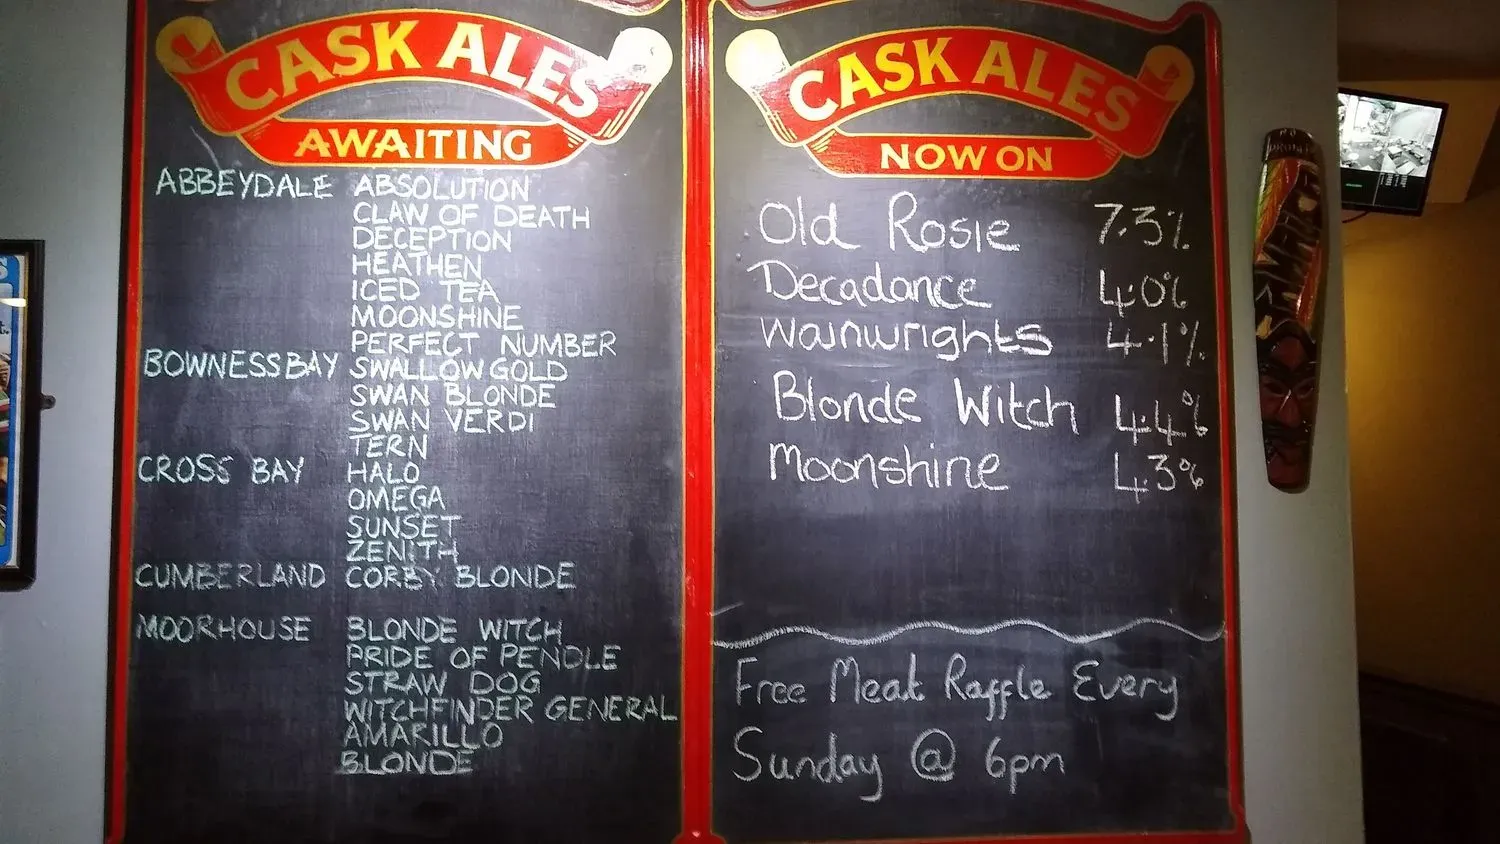 CASK ALES
AWAITING
ABBEYDALE ABSOLUTION
CLAW OF DEATH
DECEPTION
HEATHEN
ICED TEA
MOONSHINE
PERFECT NUMBER
BOWNESS BAY SWALLOW GOLD
SWAN BLONDE
SWAN VERDI
TERN
CROSS BAY HALO
OMEGA
SUNSET
ZENITH
CUMBERLAND CORBY BLONDE
MOORHOUSE BLONDE WITCH
PRIDE OF PENDLE
STRAW DOG
WITCHFINDER GENERAL
AMARILLO
BLONDE
CASK ALES
NOW ON
Old Rosie 7.3%
Decadance 4.0%
Wainwrights 4.1%
Blonde Witch 4.4%
Moonshine 4.3%
Free Meat Raffle Every
Sunday @ 6pm